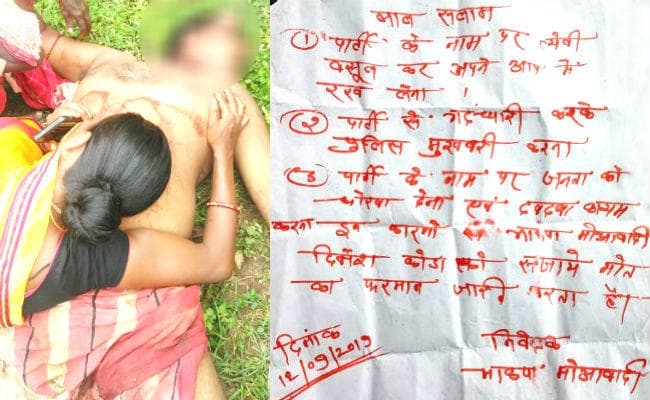 लाल सलाम
① पार्टी के नाम पर लेवी
वसूल कर अपने आप में
रख लेना ।
② पार्टी से गद्दारी करके
पुलिस मुखबरी करना
③ पार्टी के नाम पर जनता को
धोखा देना एवं दबदबा कायम
करना इन कारणों से भाकपा मोआवादी
दिनेश कोडा को सजाये मौत
का फरमान जारी करता है।
दिनांक
12/09/2019
निवेदक
भाकपा मोआवादी